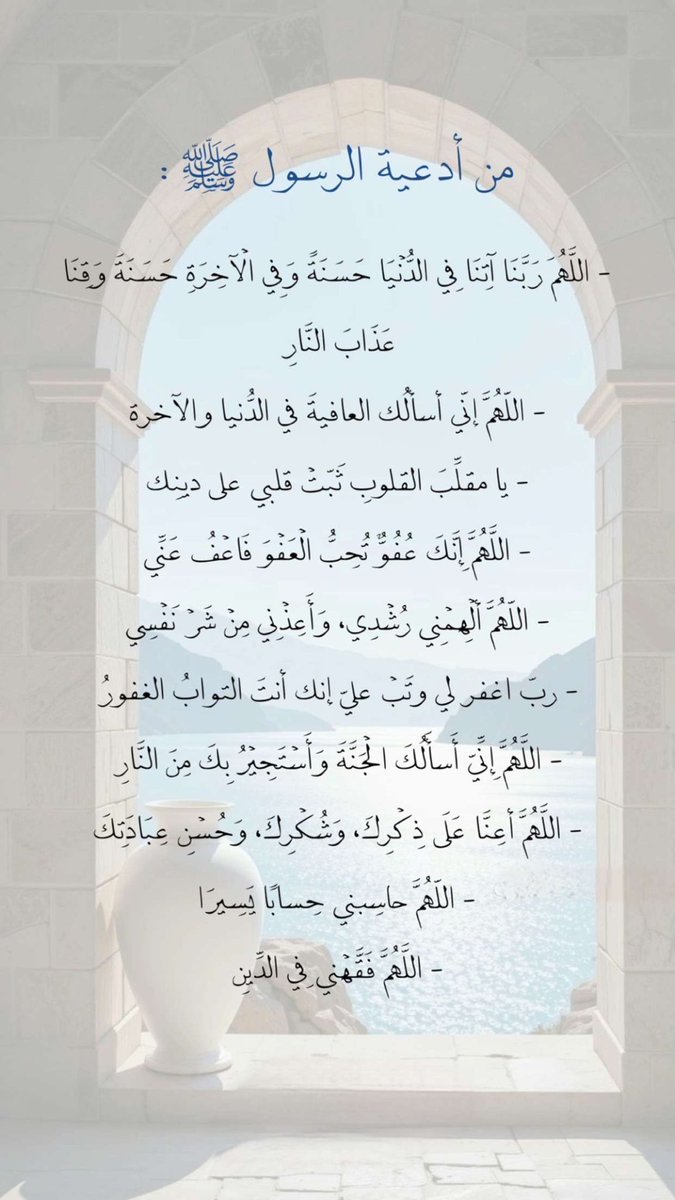 من أدعية الرسول ﷺ :
- اللَّهُمَّ رَبَّنَا آتِنَا فِي الدُّنْيَا حَسَنَةً وَفِي الْآخِرَةِ حَسَنَةً وَقِنَا
عَذَابَ النَّارِ
- اللَّهُمَّ إنّي أسألُك العافيةَ في الدُّنيا والآخرة
- يا مقلِّبَ القلوبِ ثَبّتْ قلبي على دينِك
- اللَّهُمَّ إِنَّكَ عُفُوٌّ تُحِبُّ الْعَفْوَ فَاعْفُ عَنِّي
- اللَّهُمَّ أَلْهِمْنِي رُشْدِي، وَأَعِذْنِي مِنْ شَرِّ نَفْسِي
- ربّ اغفر لي وتَبْ عليّ إنك أنتَ التوابُ الغفورُ
- اللَّهُمَّ إِنِّي أَسأَلُكَ الْجَنَّةَ وَأَسْتَجِيْرُ بِكَ مِنَ النَّارِ
- اللَّهُمَّ أَعِنَّا عَلَى ذِكْرِكَ، وَشُكْرِكَ، وَحُسْنِ عِبَادَتِكَ
- اللَّهُمَّ حاسِبني حِسابًا يَسِيرَا
- اللَّهُمَّ فَقَّهْني فِي الدِّينِ